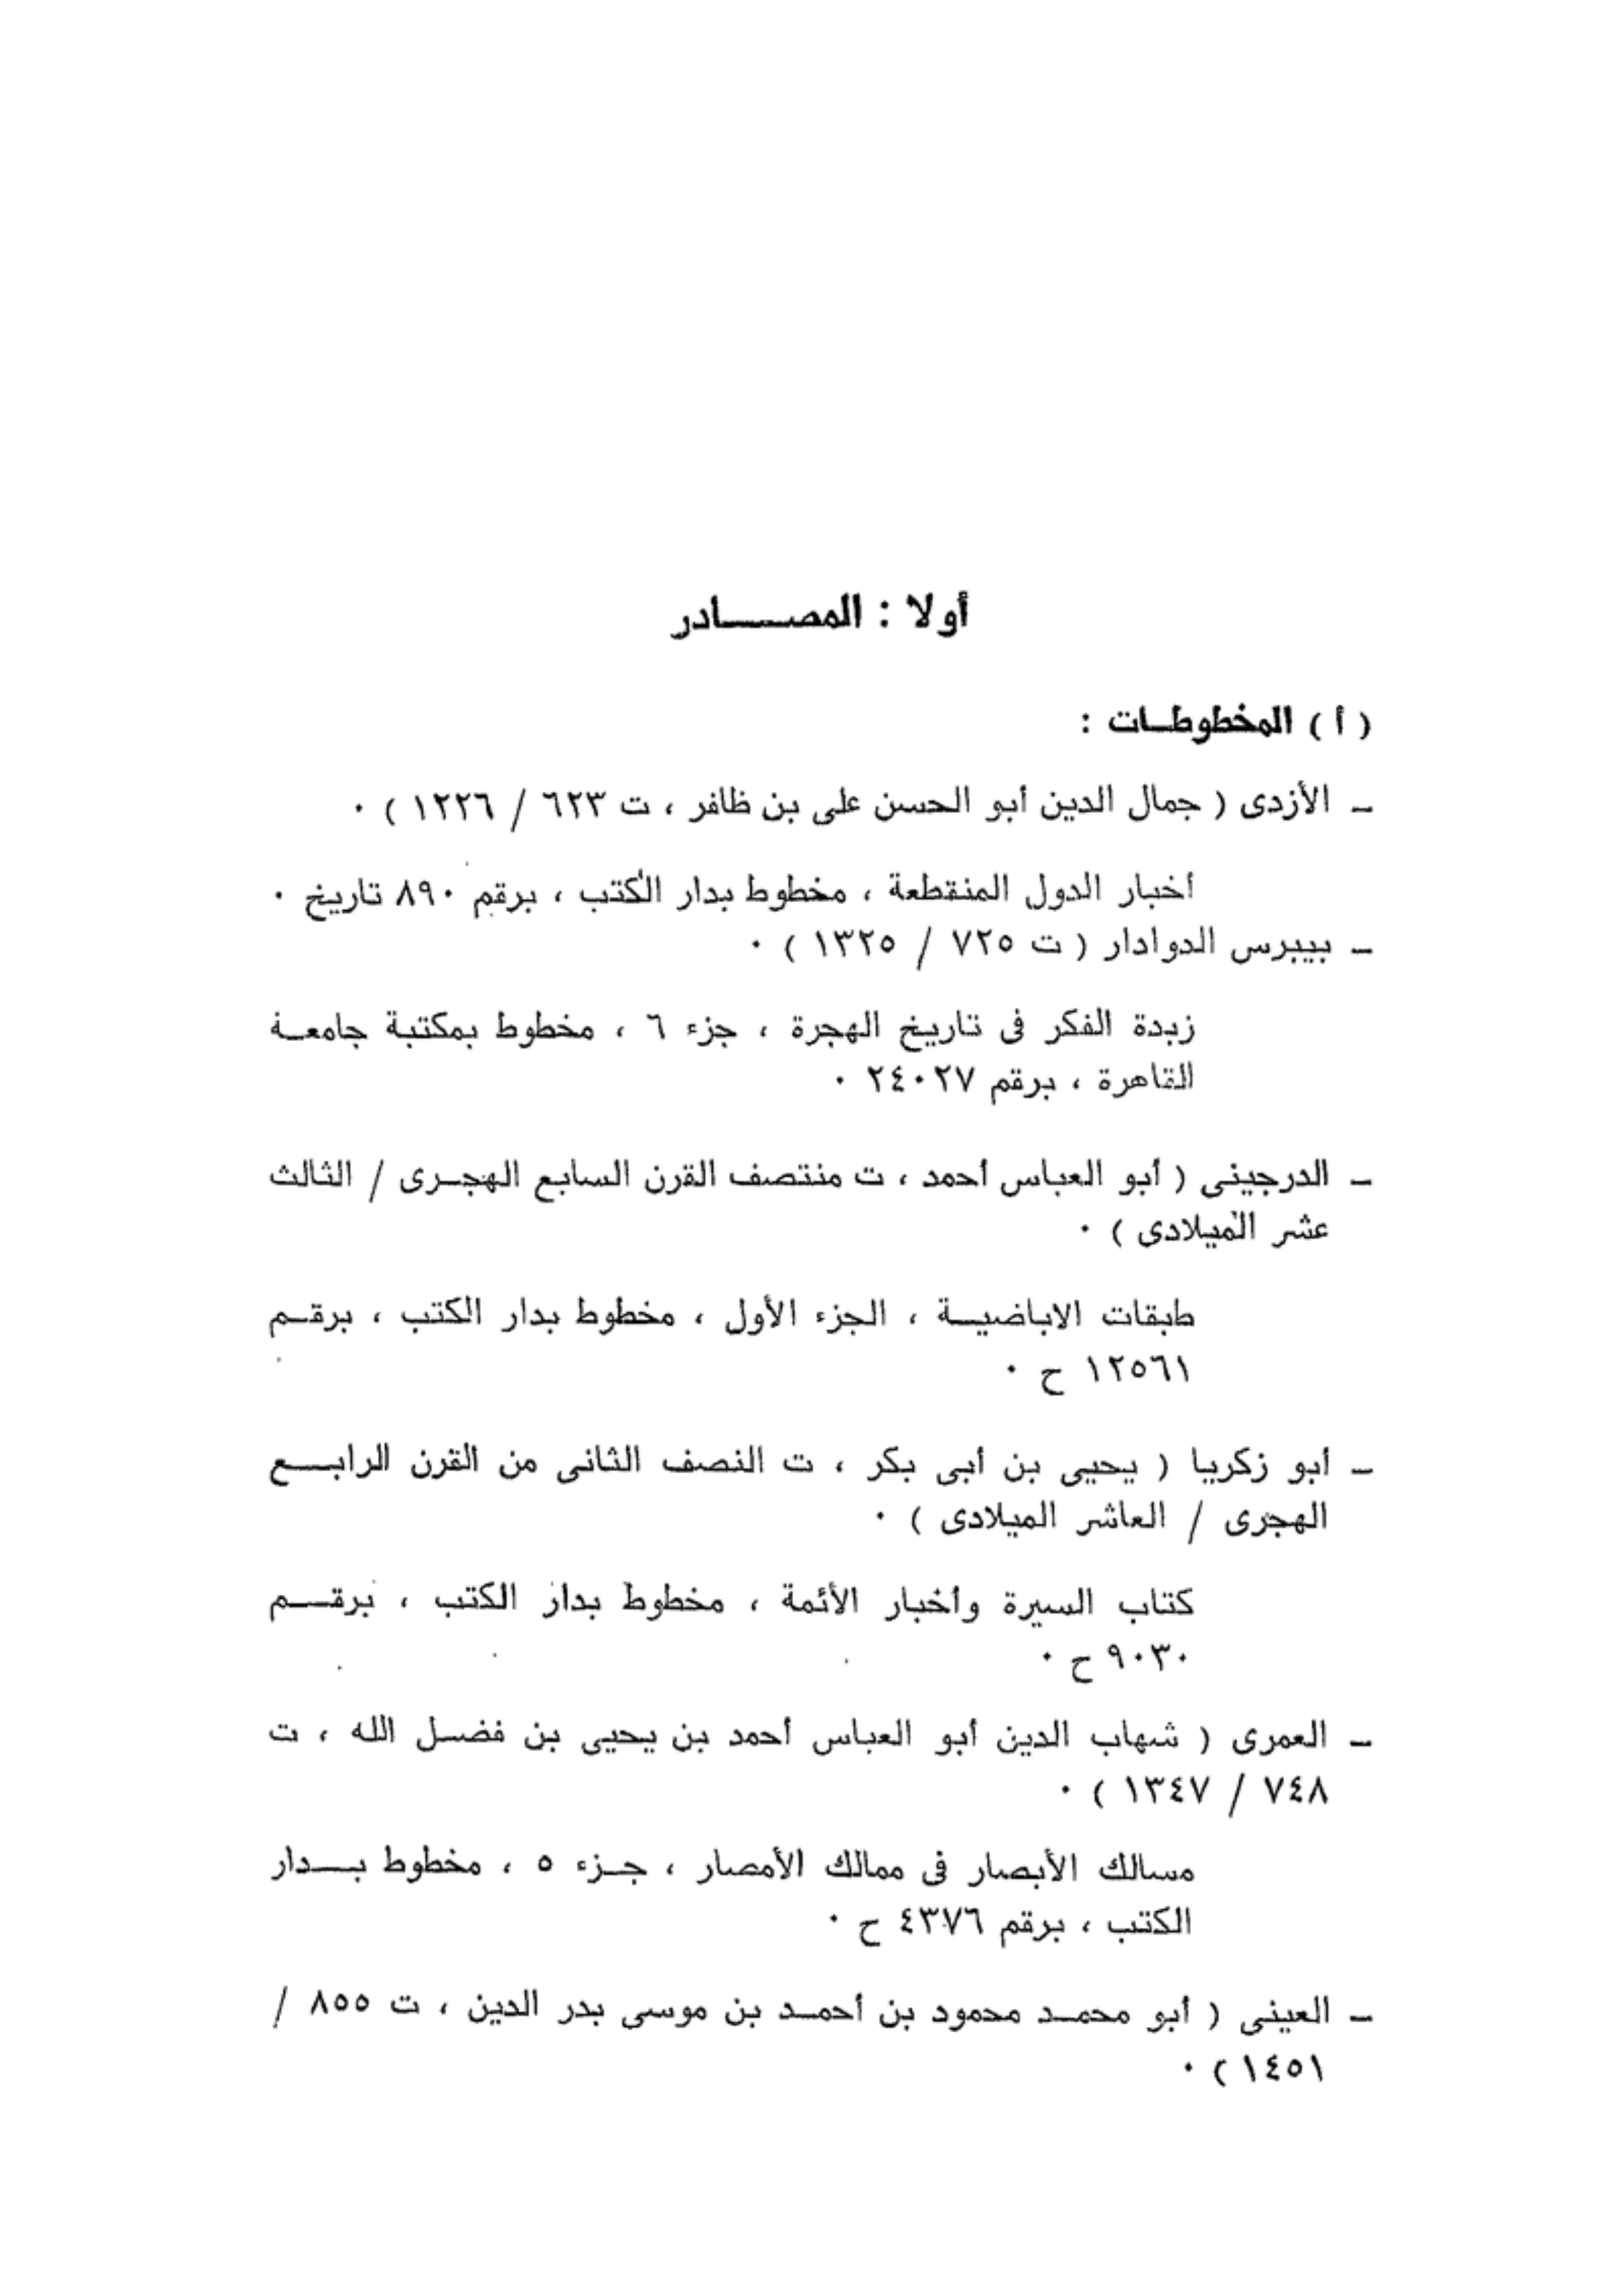 أولا : المصادر
( أ ) المخطوطات :
ـ الأزدى ( جمال الدين أبو الحسن على بن ظافر ، ت ٦٢٣ / ١٢٢٦ ) ٠
أخبار الدول المنقطعة ، مخطوط بدار الكتب ، برقم ٨٩٠ تاريخ ٠
ـ بيبرس الدوادار ( ت ٧٢٥ / ١٣٢٥ ) ٠
زبدة الفكر فى تاريخ الهجرة ، جزء ٦ ، مخطوط بمكتبة جامعة
القاهرة ، برقم ٢٤٠٢٧ ٠
ـ الدرجينى ( أبو العباس أحمد ، ت منتصف القرن السابع الهجرى / الثالث
عشر الميلادى ) ٠
طبقات الاباضية ، الجزء الأول ، مخطوط بدار الكتب ، برقم
١٢٥٦١ ح ٠
ـ أبو زكريا ( يحيى بن أبى بكر ، ت النصف الثانى من القرن الرابع
الهجرى / العاشر الميلادى ) ٠
كتاب السيرة وأخبار الأئمة ، مخطوط بدار الكتب ، برقم
٩٠٣٠ ح ٠
ـ العمرى ( شهاب الدين أبو العباس أحمد بن يحيى بن فضل الله ، ت
٧٤٨ / ١٣٤٧ ) ٠
مسالك الأبصار فى ممالك الأمصار ، جزء ٥ ، مخطوط بدار
الكتب ، برقم ٤٣٧٦ ح ٠
ـ العينى ( أبو محمد محمود بن أحمد بن موسى بدر الدين ، ت ٨٥٥ /
١٤٥١ ) ٠